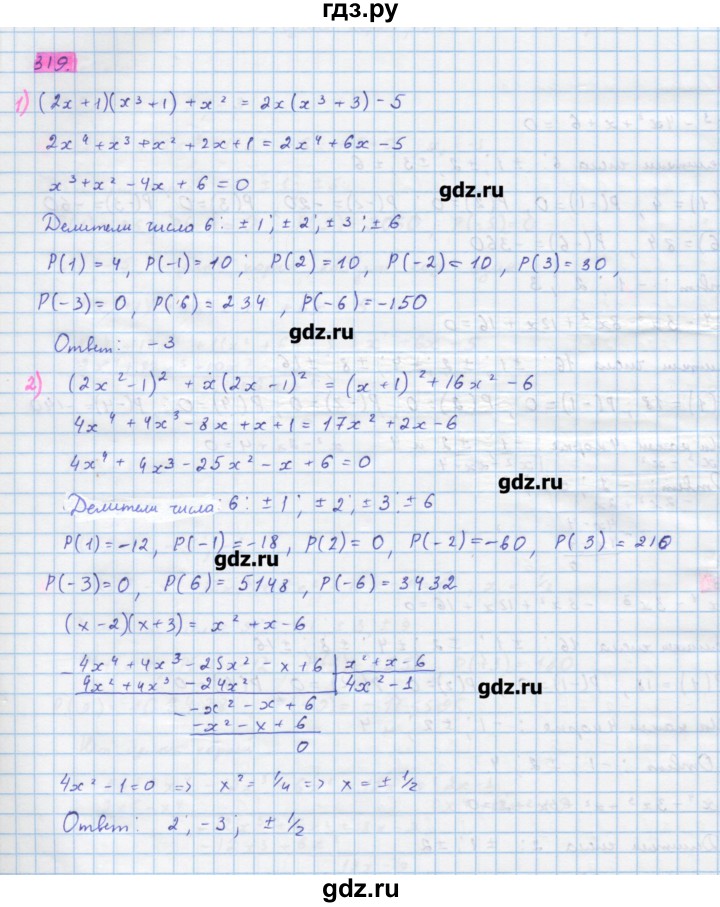 гдз.ру
319.
1) (2x+1)(x³+1)+x² = 2x(x³+3)-5
2x⁴+x³+x²+2x+1=2x⁴+6x-5
x³+x²-4x+6=0
gdz.ru
Делители числа 6: ±1; ±2; ±3; ±6
P(1)=4, P(-1)=10; P(2)=10, P(-2)=10, P(3)=30,
P(-3)=0, P(6)=234, P(-6)=-150
gdz.ru
Ответ: -3
2) (2x²-1)² + x(2x-1)² = (x+1)²+16x²-6
4x⁴+4x³-8x+x+1=17x²+2x-6
4x⁴+4x3-25x²-x+6=0
gdz.ru
Делители числа: 6: ±1; ±2; ±3; ±6
P(1)=-12, P(-1)=-18, P(2)=0, P(-2)=-60, P(3)=216
gdz.ru
P(-3)=0, P(6)=5148, P(-6)=3432
(x-2)(x+3)=x²+x-6
4x⁴+4x³-25x²-x+6 | x²+x-6
4x²+4x³-24x² | 4x²-1
gdz.ru
-x²-x+6
-x²-x+6
0
4x²-1=0 => x²=1/4 => x=±1/2
Ответ: 2; -3; ±1/2
gdz.ru